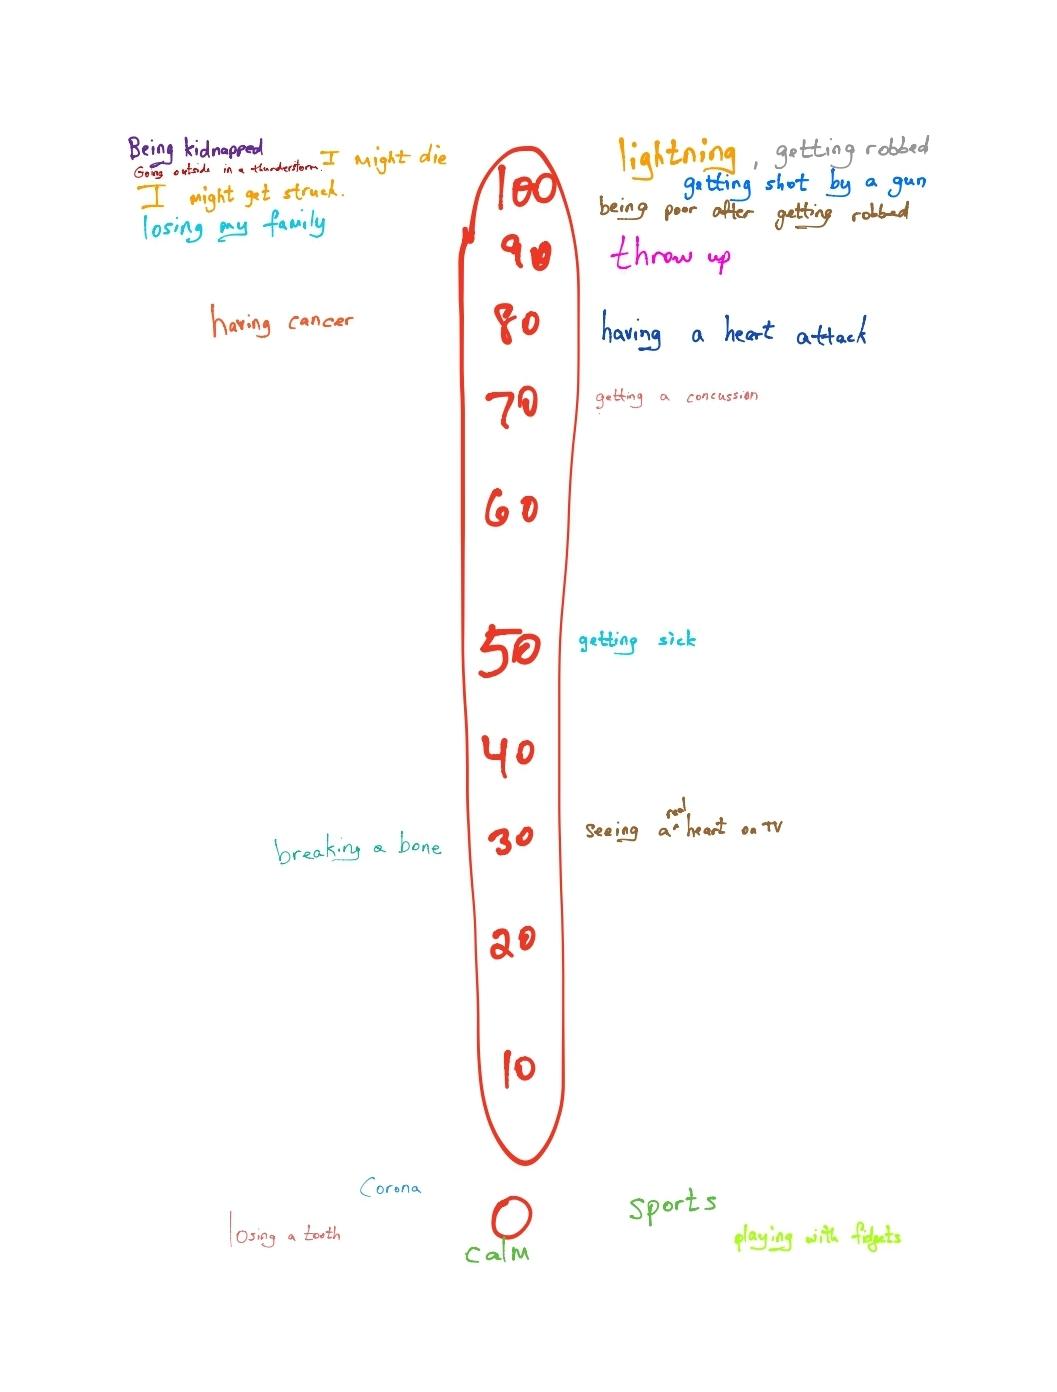 Being kidnapped
Going outside in a thunderstorm. I might die
I might get struck.
losing my family
lightning, getting robbed
getting shot by a gun
being poor after getting robbed
100
90
throw up
having cancer
80
having a heart attack
70
getting a concussion
60
50
getting sick
40
30
seeing a real heart on TV
breaking a bone
20
10
Corona
losing a tooth
0
calm
sports
playing with fidgets